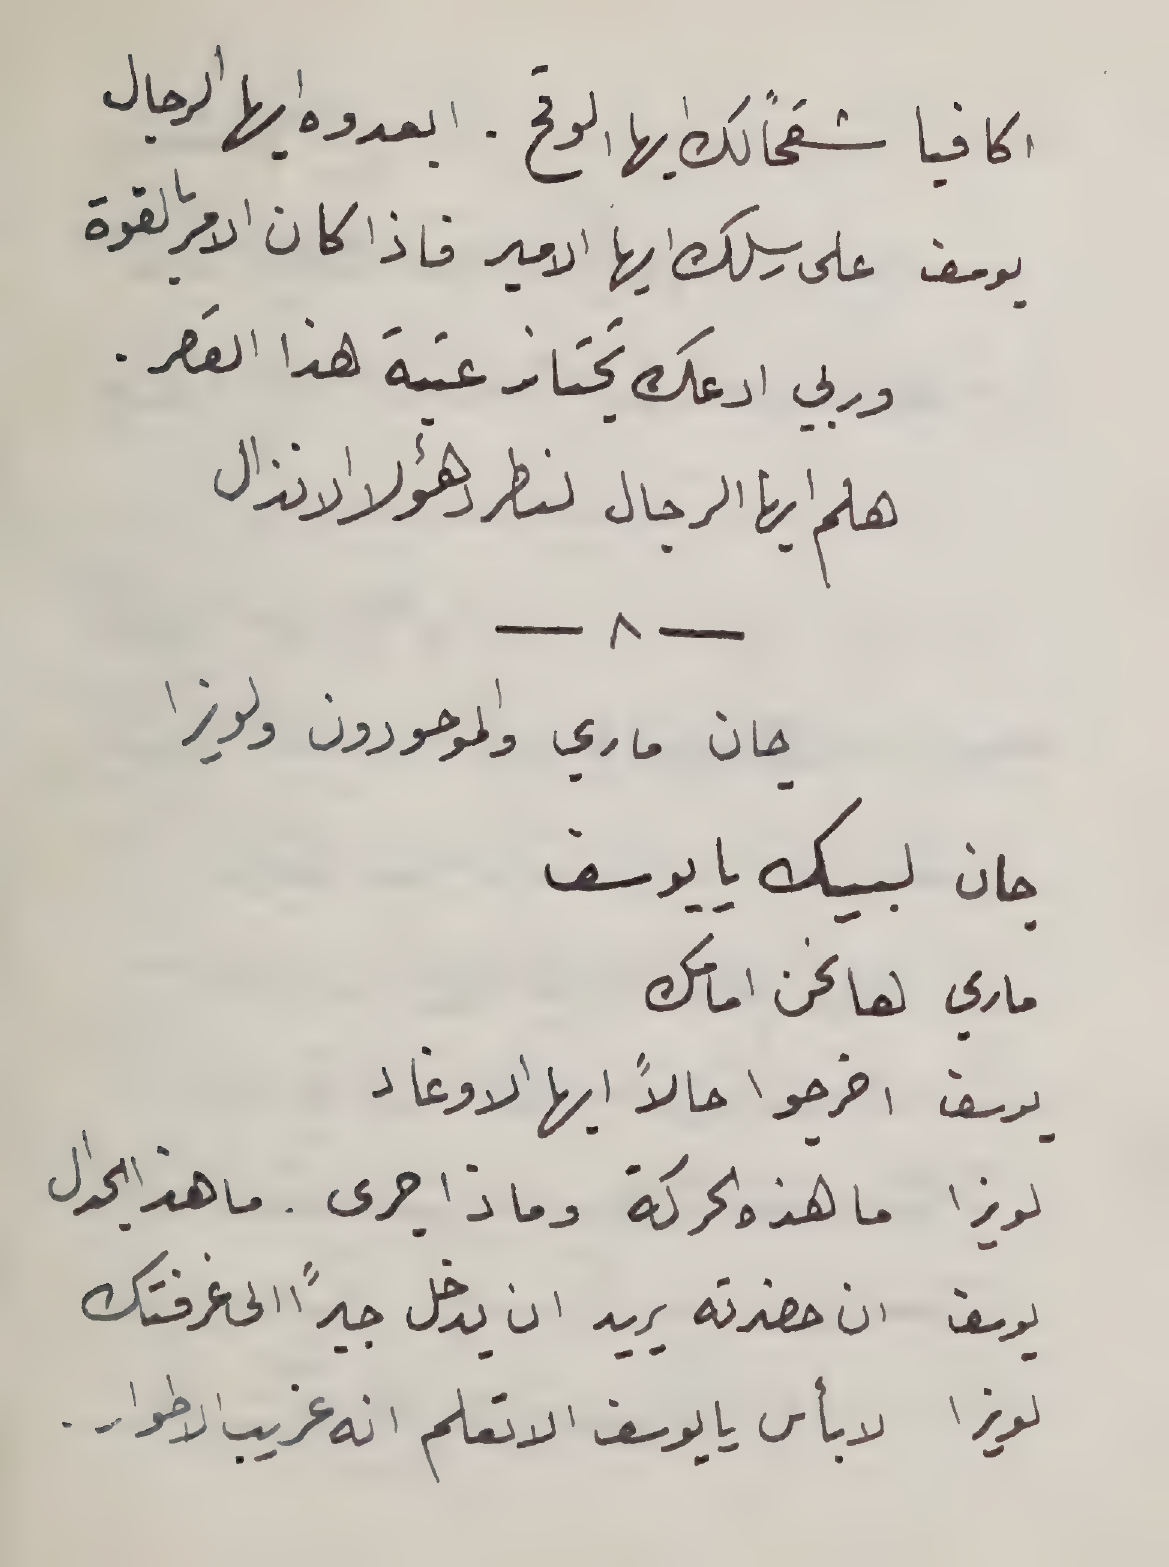 اكافيا شقحًا لك ايها الوقح . ابعدوه ايها الرجال
يوسف على رسلك ايها الامير فاذا كان الامر بالقوة
وربي ادعك تجتاز عتبة هذا القصر .
هلم ايها الرجال لنطرد هؤلا الانذال
— ٨ —
جان ماري والموجودون ولويزا
جان لبيك يا يوسف
ماري ها نحن امامك
يوسف اخرجوا حالاً ايها الاوغاد
لويزا ما هذه الحركة وماذا جرى . ما هذا الجدال
يوسف ان حضرته يريد ان يدخل جبرًا الى غرفتك
لويزا لا بأس يا يوسف الا تعلم انه غريب الاطوار .